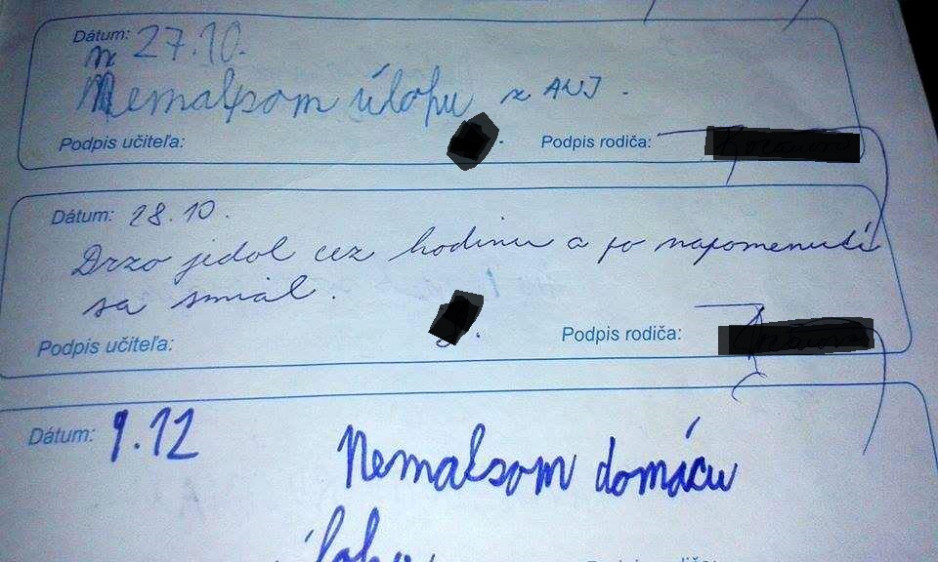 Dátum: 27.10.
Nemalsom úlohu z ANJ.
Podpis učiteľa: Podpis rodiča:
Dátum: 28.10.
Drzo jedol cez hodinu a po napomenutí
sa smial.
Podpis učiteľa: Podpis rodiča:
Dátum: 9.12
Nemalsom domácu
úlohu